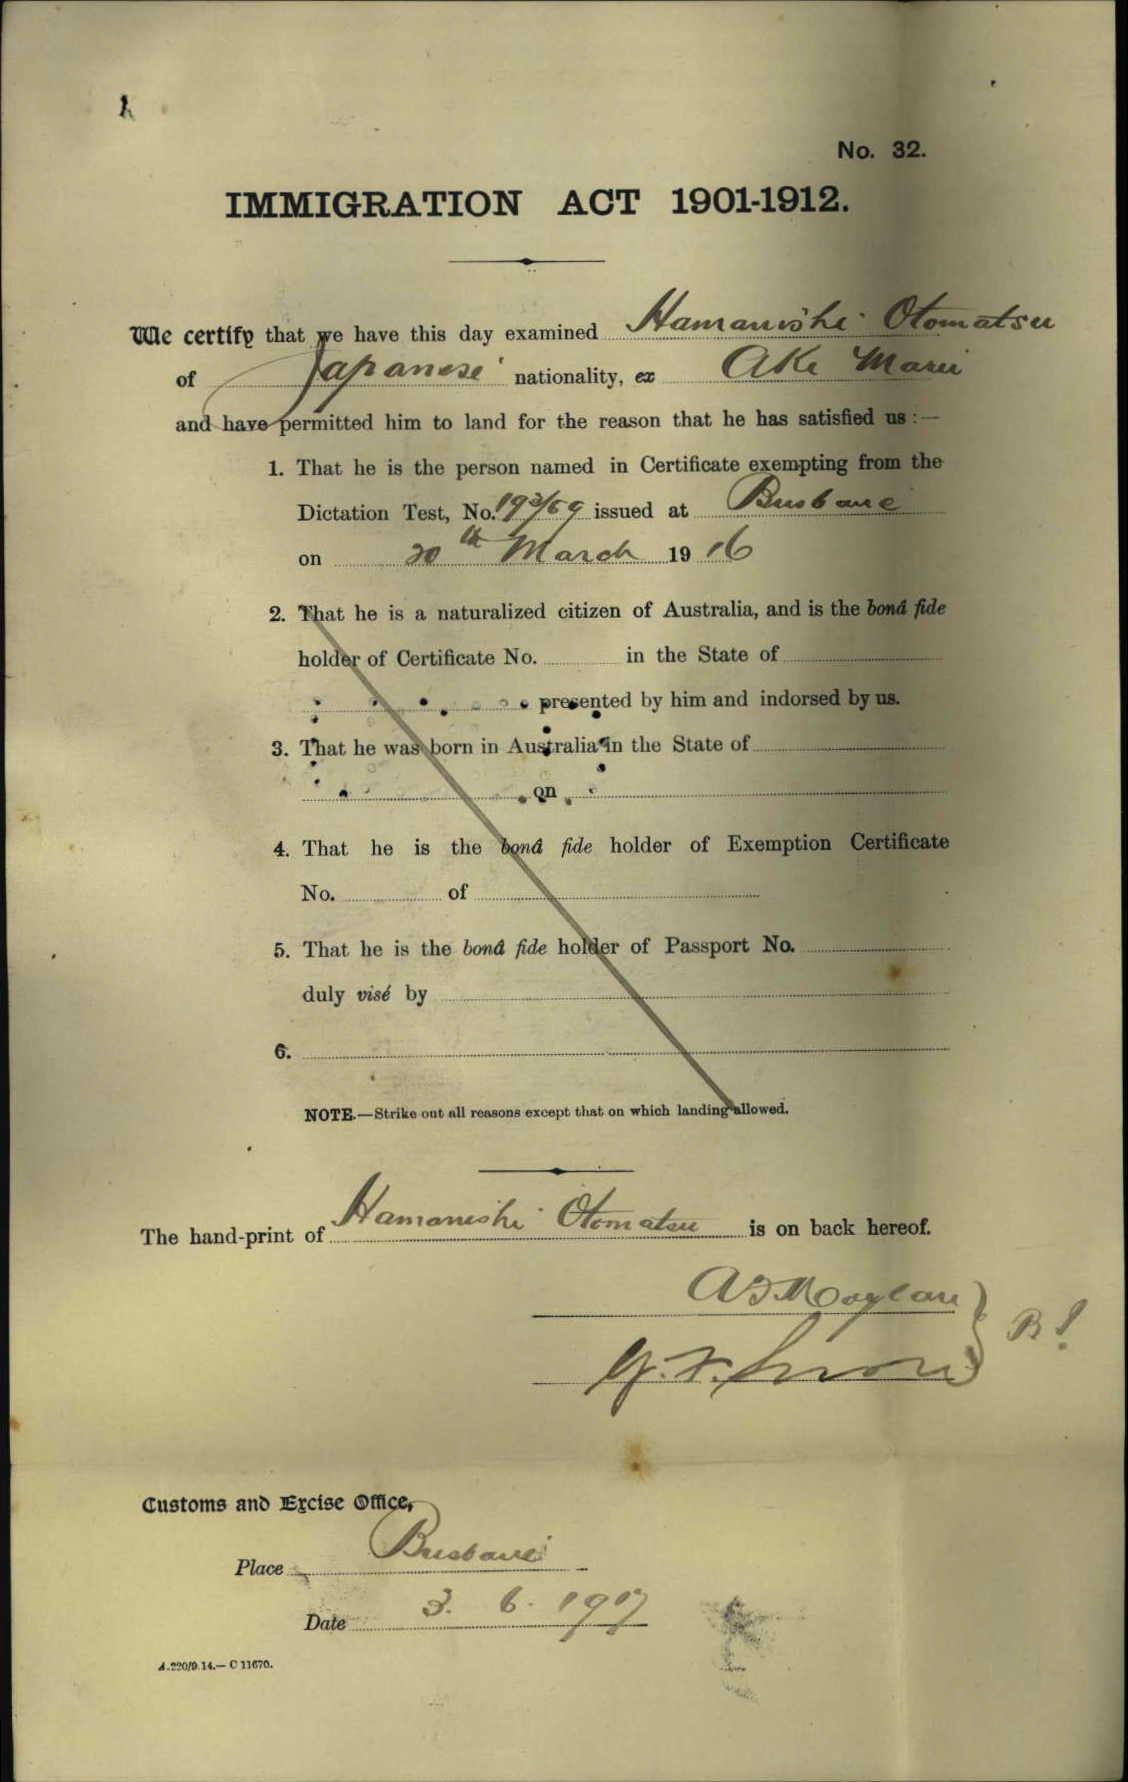 No. 32.
IMMIGRATION ACT 1901-1912.
We certify that we have this day examined Hamanishi Otomatsu
of Japanese nationality, ex Aki Maru
and have permitted him to land for the reason that he has satisfied us :—
1. That he is the person named in Certificate exempting from the
Dictation Test, No. 193/69 issued at Brisbane
on 20th March 1916
2. That he is a naturalized citizen of Australia, and is the bonâ fide
holder of Certificate No. in the State of
presented by him and indorsed by us.
3. That he was born in Australia in the State of
on
4. That he is the bonâ fide holder of Exemption Certificate
No. of
5. That he is the bonâ fide holder of Passport No.
duly visé by
6.
NOTE.—Strike out all reasons except that on which landing allowed.
The hand-print of Hamanishi Otomatsu is on back hereof.
Customs and Excise Office,
Place Brisbane
Date 3. 6. 1917
A.220/9.14.— C 11670.